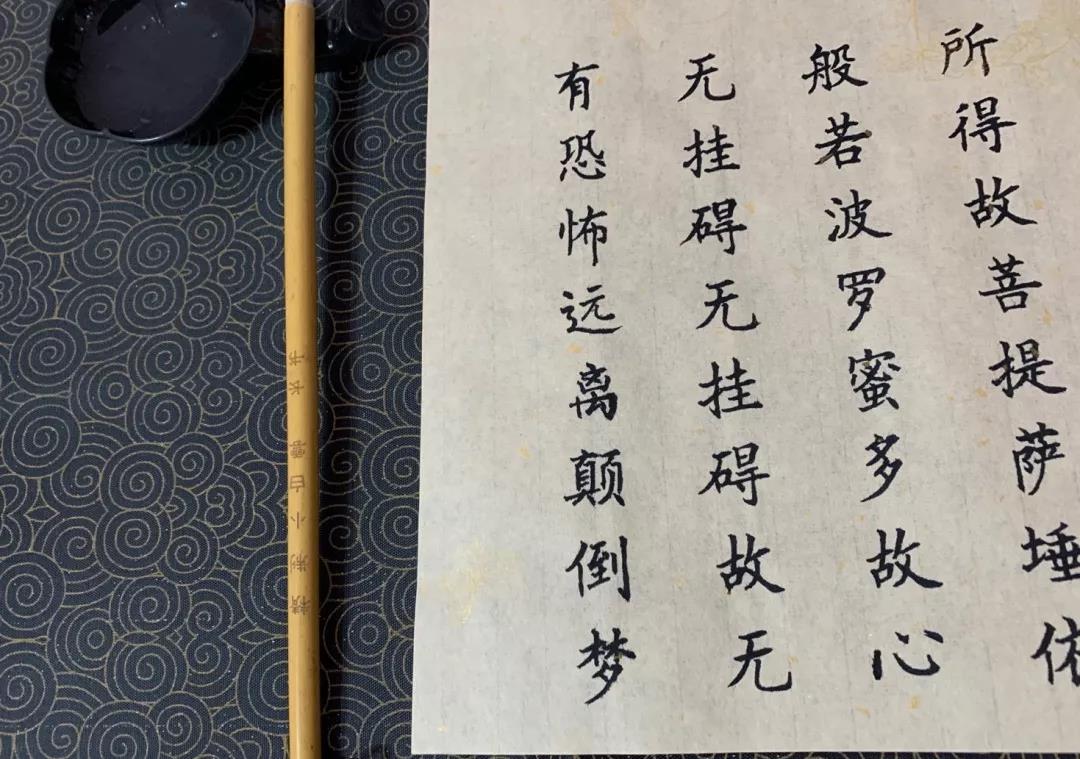 所得故菩提萨埵依
般若波罗蜜多故心
无挂碍无挂碍故无
有恐怖远离颠倒梦
精制小白雲